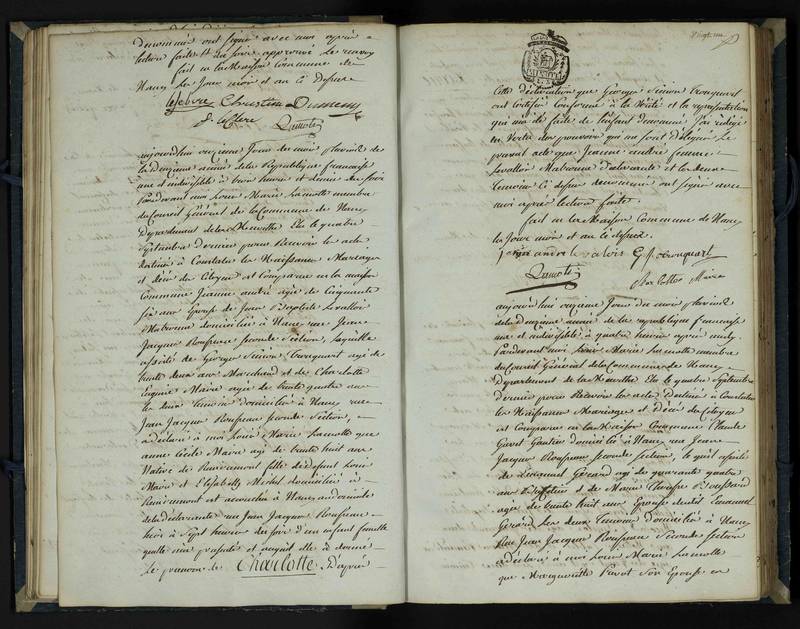 Denommés ont signé avec moi après
lecture faite
fait en la Maison Commune de
Nancy Le Jour mois et an ci dessus
Lefebvre Christine Dumeny
Lamotte
aujourd'hui onzieme Jour du mois
de la deuxieme année de la Republique francaise
une et indivisible à trois heures et demie du soir
Pardevant moi Louis Marie Lamotte membre
du Conseil Général de la Commune de Nancy
Département de la Meurthe Elu le quatre
Septembre dernier pour Recevoir les acte
destinés à Constater les Naissances Mariages
et décès des Citoyens est Comparue en la maison
Commune Jeanne andré agée de Cinquante
six ans Epouse de Jean Baptiste Levallois
Matrone domiciliée à Nancy rue Jean
Jacques Rousseau seconde section, laquelle
assistée de George Simon Cronquart agé de
trente deux ans Marchand et de Charlotte
Eugenie Maire agée de trente quatre ans
les deux temoins domiciliés à Nancy rue
Jean Jacques Rousseau seconde Section,
a déclaré à moi Louis Marie Lamotte que
anne Cécile Maire agée de trente huit ans
Native de Remiremont fille de défunt Louis
Maire et Elisabeth Michel domiciliée à
Remiremont est accouchée à Nancy au domicile
de la déclarante rue Jean Jacques Rousseau
hier à Sept heures du soir d'un enfant femelle
quelle m'a présenté et auquel elle a donné
Le prenom de Charlotte. D'après
Cette déclaration que George Simon Cronquart
ont certifié Conforme à la Vérité et la représentation
qui m'a été faite de l'enfant denommé J'ai rédigé
en Vertu des pouvoirs qui me sont délégués Le
present acte que Jeanne andré femme
Levallois Matrone déclarante et les deux
temoins ci dessus denommés ont signé avec
moi après lecture faite.
fait en la Maison Commune de Nancy
les Jour mois et an ci dessus.
andré levalois G S Cronquart
Lamotte
Charlotte Maire
aujourd'hui onzieme Jour du mois
de la deuxieme année de la republique francaise
une et indivisible à quatre heures après midy
Pardevant moi Louis Marie Lamotte membre
du Conseil Général de la Commune de Nancy
Département de la Meurthe Elu le quatre Septembre
Dernier pour Recevoir les acte Destinés à Constater
les Naissances Mariages et Décès des Citoyens
est Comparu en la Maison Commune Claude
domicilié à Nancy rue Jean
Jacques Rousseau seconde section, lequel assisté
de Gérard agé de quarante quatre
ans et de Marie Therese
agée de trente huit ans Epouse dudit Emanuel
Gérard les deux temoins Domiciliés à Nancy
Rue Jean Jacques Rousseau Seconde Section
a déclaré à moi Louis Marie Lamotte
que Margueritte Son Epouse en